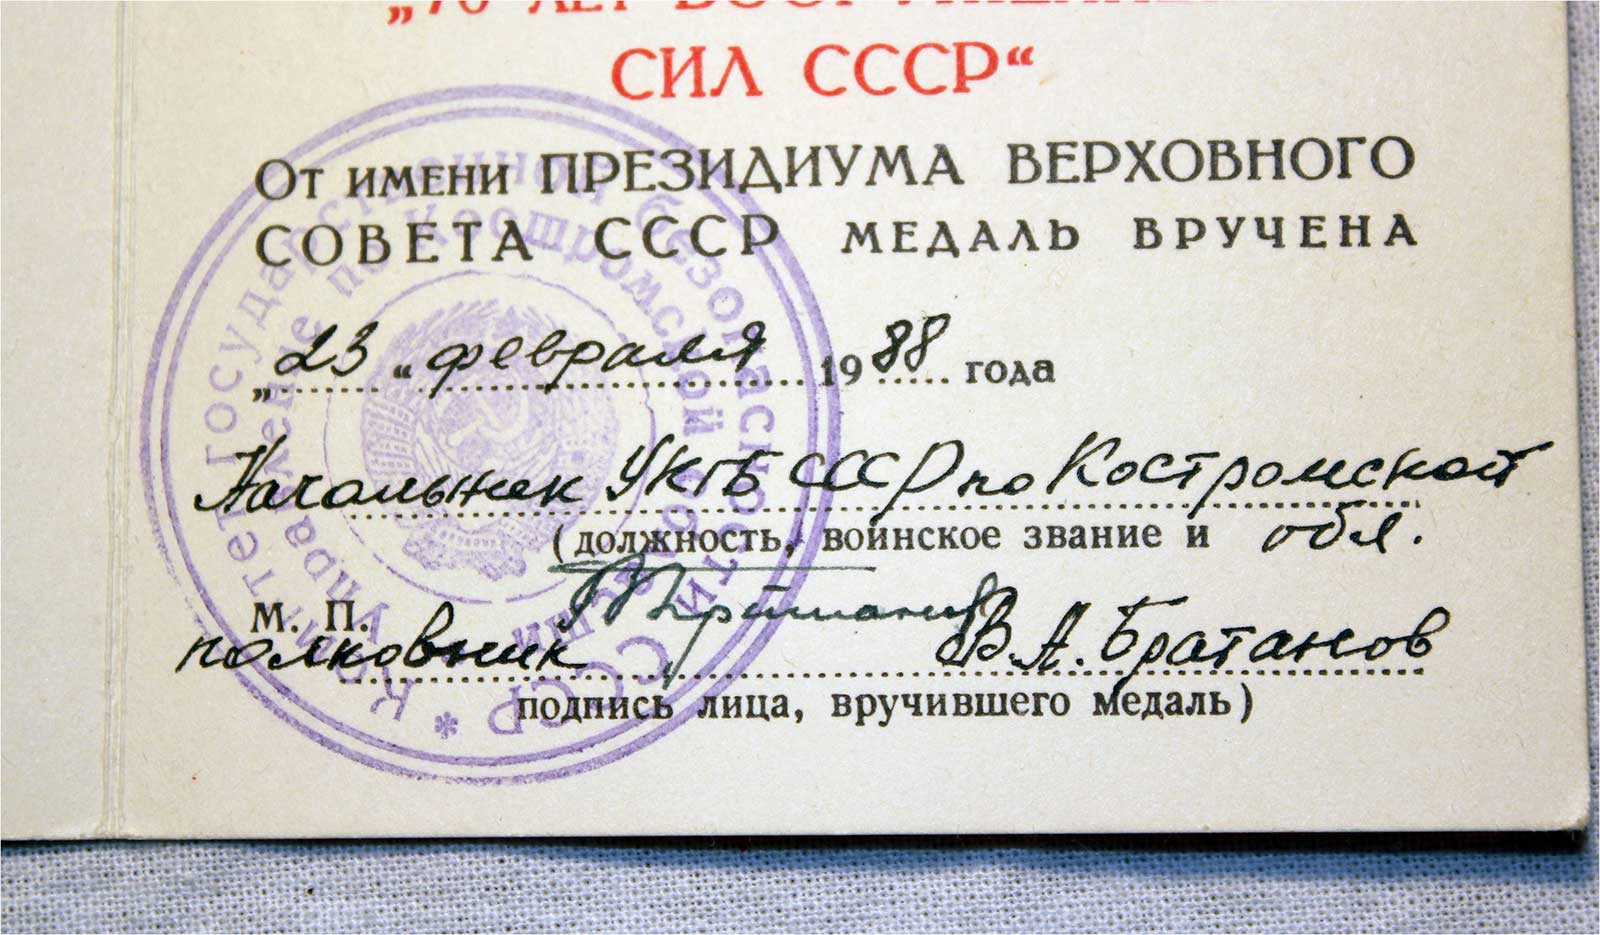 „70 ЛЕТ ВООРУЖЕННЫХ
СИЛ СССР“
От имени ПРЕЗИДИУМА ВЕРХОВНОГО
СОВЕТА СССР МЕДАЛЬ ВРУЧЕНА
„23“ февраля 1988 года
Начальник УКГБ СССР по Костромской
(должность, воинское звание и обл.
М. П.
полковник В.А. Братанов
подпись лица, вручившего медаль)
* Комитет государственной безопасности СССР
Управление по Костромской области